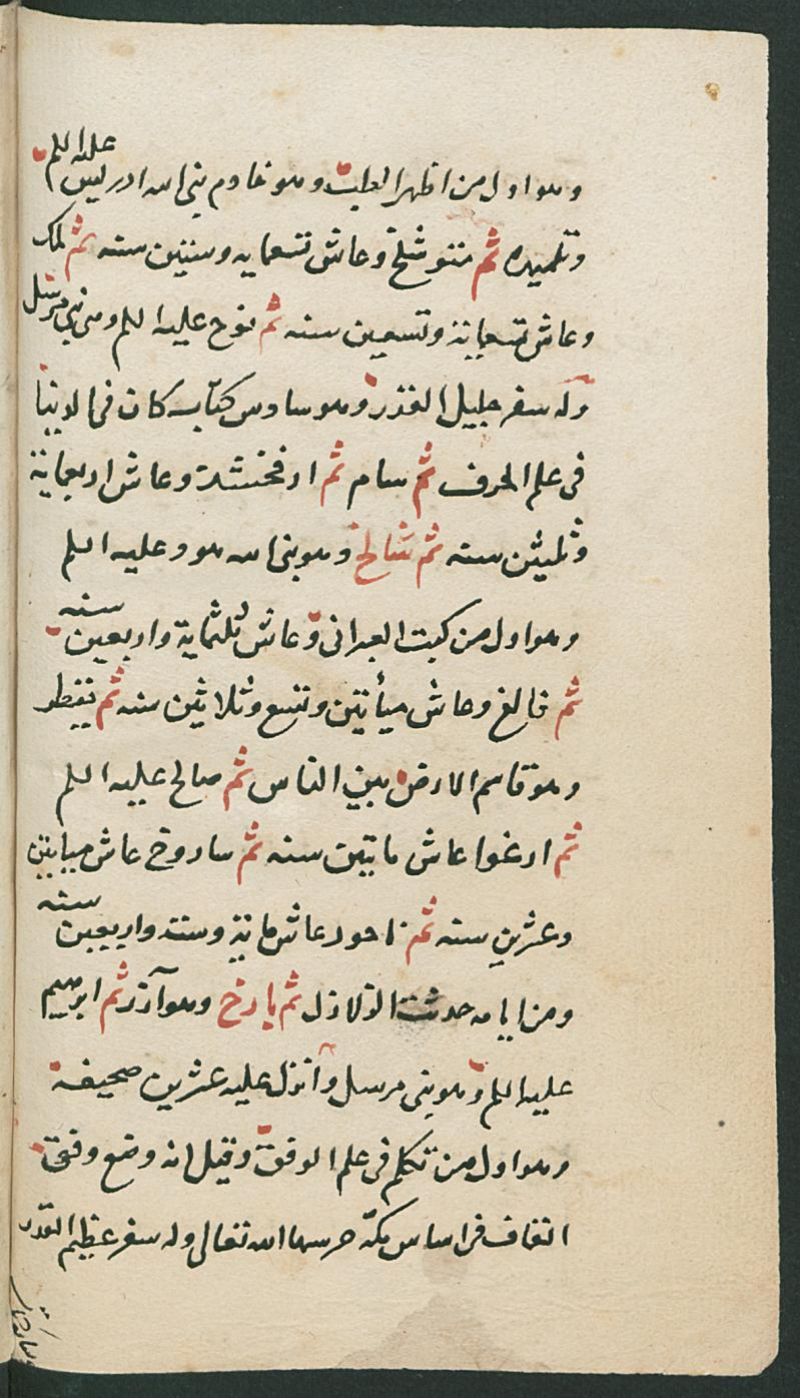 وهو اول من اظهر الطب وهو خادم نبي الله ادريس عليه السلم
وتلميذه ثم متوشلخ وعاش تسعمايه وستين سنه ثم لمك
وعاش تسعماية وتسعين سنه ثم نوح عليه السلم وهو نبي مرسل
وله سفر جليل القدر وهو سادس كتاب كان في الدنيا
في علم الحرف ثم سام ثم ارفخشد وعاش اربعماية
وثلثين سنه ثم شالخ وهو نبي الله هود عليه السلم
وهو اول من كتب العبراني وعاش ثلثماية واربعين سنه
ثم فالغ وعاش ميأتين وتسع وثلاثين سنه ثم يقطر
وهو قاسم الارض بين الناس ثم صالح عليه السلم
ثم ارغوا عاش ماتين سنه ثم ساروخ عاش ميايتين
وعشرين سنه ثم ناحور عاش ماية وستة واربعين سنه
ومن ايامه حدثت الزلازل ثم يارخ وهو آزر ثم ابرهيم
عليه السلم وهو نبي مرسل وأنزل عليه عشرين صحيفة
وهو اول من تكلم في علم الوفق وقيل انه وضع وفق
القاف في اساس مكة حرسها الله تعالى وله سفر عظيم القدر